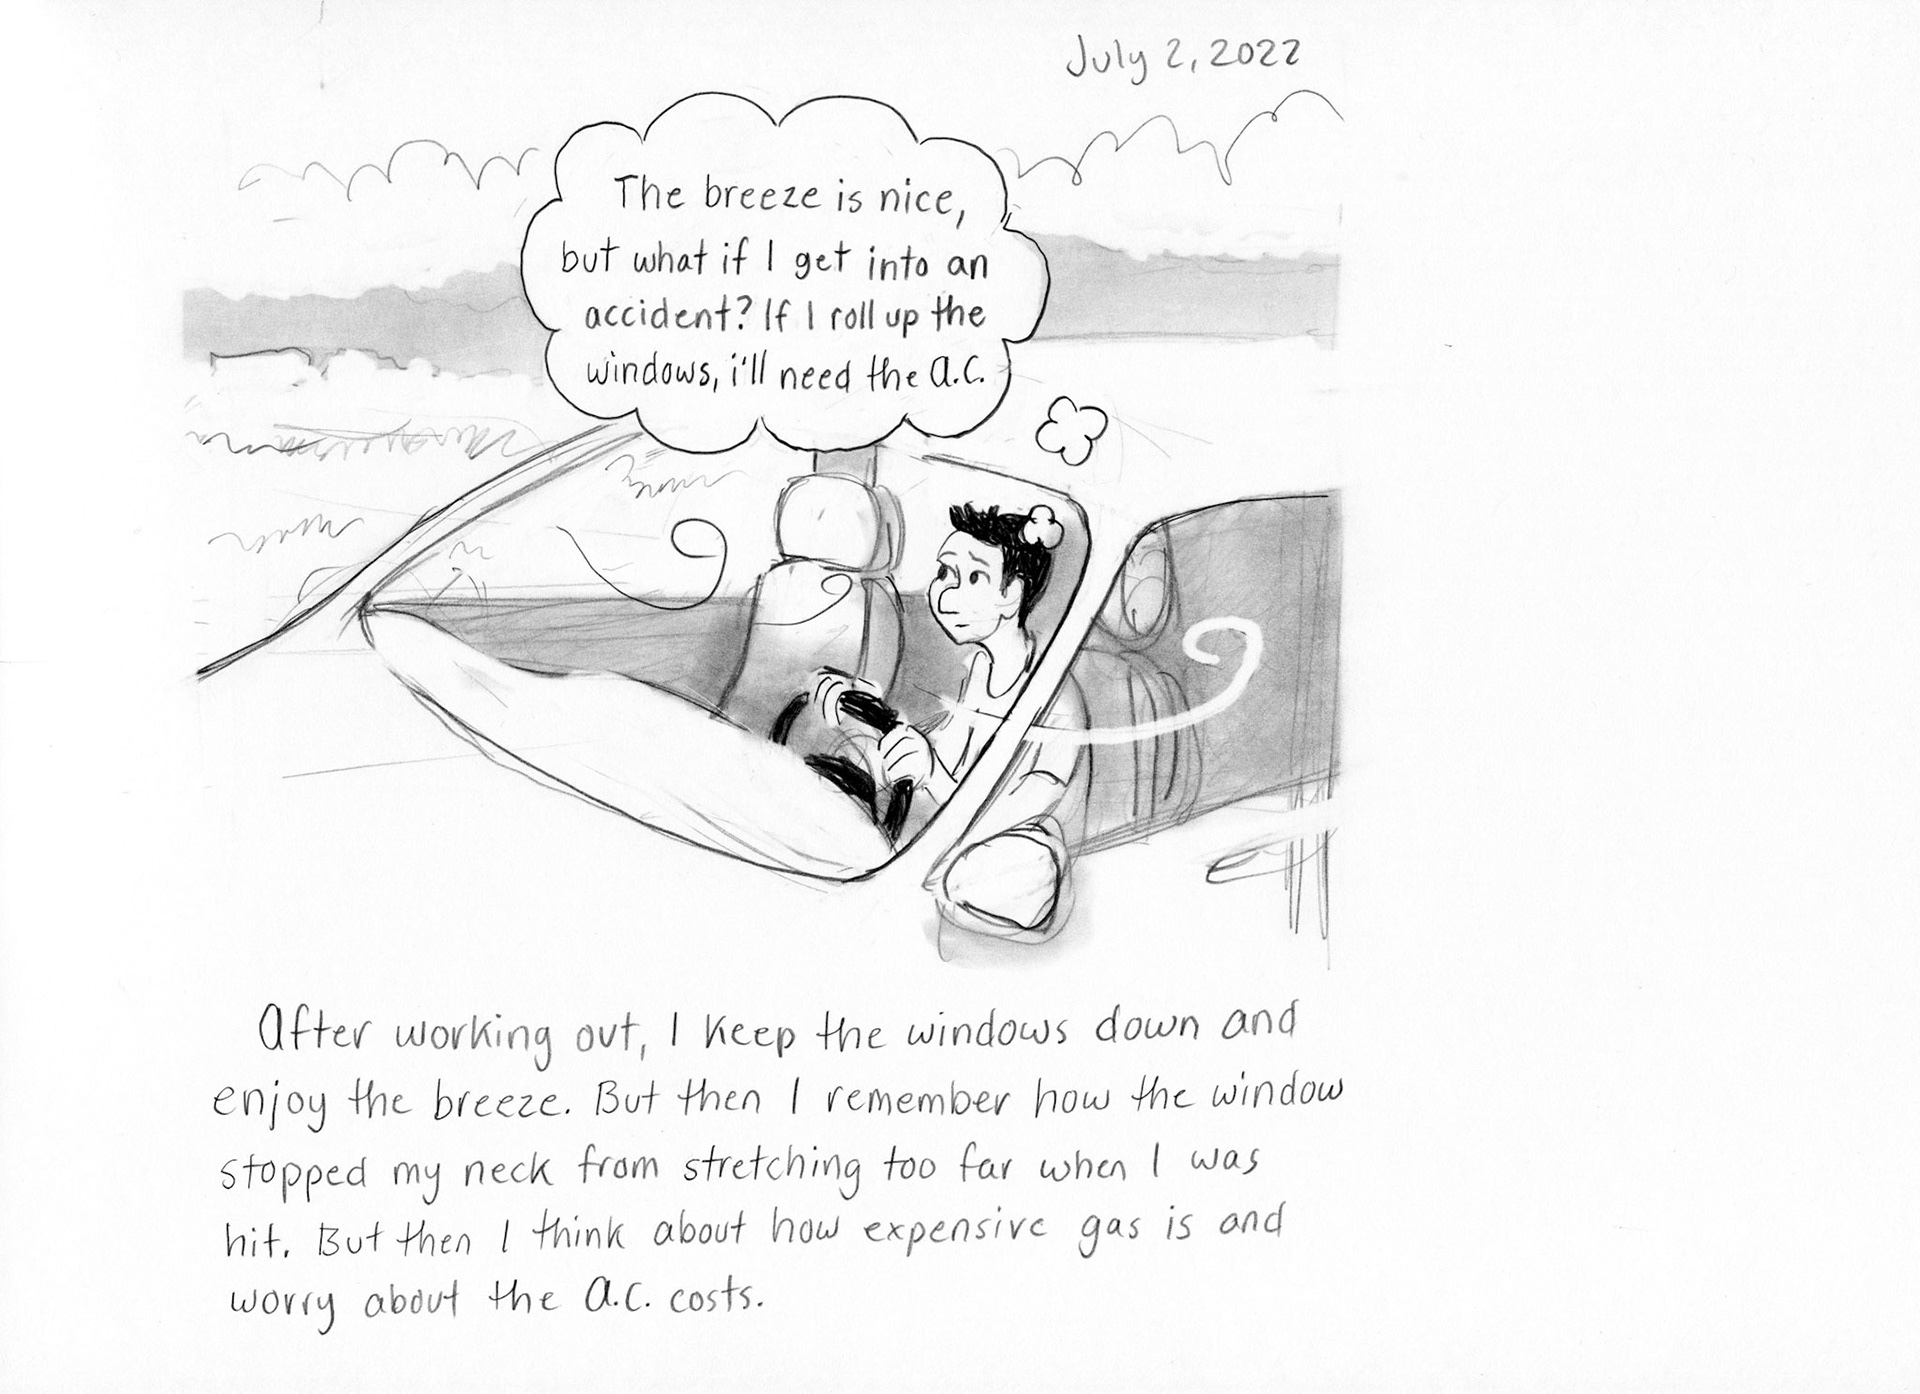 July 2, 2022
The breeze is nice,
but what if I get into an
accident? If I roll up the
windows, i'll need the a.c.
After working out, I keep the windows down and
enjoy the breeze. But then I remember how the window
stopped my neck from stretching too far when I was
hit. But then I think about how expensive gas is and
worry about the a.c. costs.